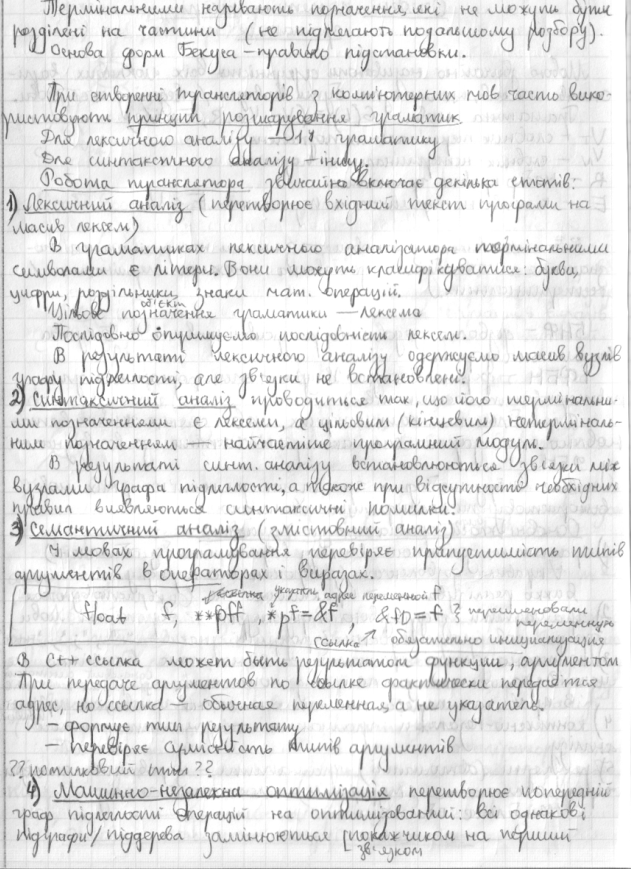 Термінальними називають позначення, які не можуть бути
розділені на частини (не підлягають подальшому розбору).
Основа форм Бекуса – правило підстановки.
При створенні трансляторів з комп'ютерних мов часто вико-
ристовують принцип розшарування граматик
Для лексичного аналізу – 1у граматику
Для синтаксичного аналізу – іншу.
Робота транслятора звичайно включає декілька етапів:
1) Лексичний аналіз (перетворює вхідний текст програми на
масив лексем)
В граматиках лексичного аналізатора термінальними
символами є літери. Вони можуть класифікуватися: букви,
цифри, роздільники, знаки мат. операцій.
об'єкт
Цільове позначення граматики – лексема
Послідовно отримуємо послідовність лексем.
В результаті лексичного аналізу одержуємо масив вузлів
графу підлеглості, але зв'язки не встановлені.
2) Синтаксичний аналіз проводиться так, що його термінальни-
ми позначеннями є лексеми, а цільовим (кінцевим) нетерміналь-
ним позначенням – найчастіше програмний модуль.
В результаті синт. аналізу встановлюються зв'язки між
вузлами графа підлеглості, а також при відсутності необхідних
правил виявляються синтаксичні помилки.
3) Семантичний аналіз (змістовний аналіз)
У мовах програмування перевіряє припустимість типів
аргументів в операторах і виразах.
адрес переменной f
float f, **pff, *pf=&f &fD=f переименовали
переменную
ссылка обязательно инициализация
В С++ ссылка может быть результатом функции, аргументом
При передаче аргументов по ссылке фактически передается
адрес, но ссылка – обычная переменная, а не указатель.
– формує тип результату
– перевіряє сумісність типів аргументів
?? помилковий тип ??
4) Машинно-незалежна оптимізація перетворює попередній
граф підлеглості операцій на оптимізований: всі однакові
підграфи/піддерева замінюються [покажчиком на перший
зв'язком